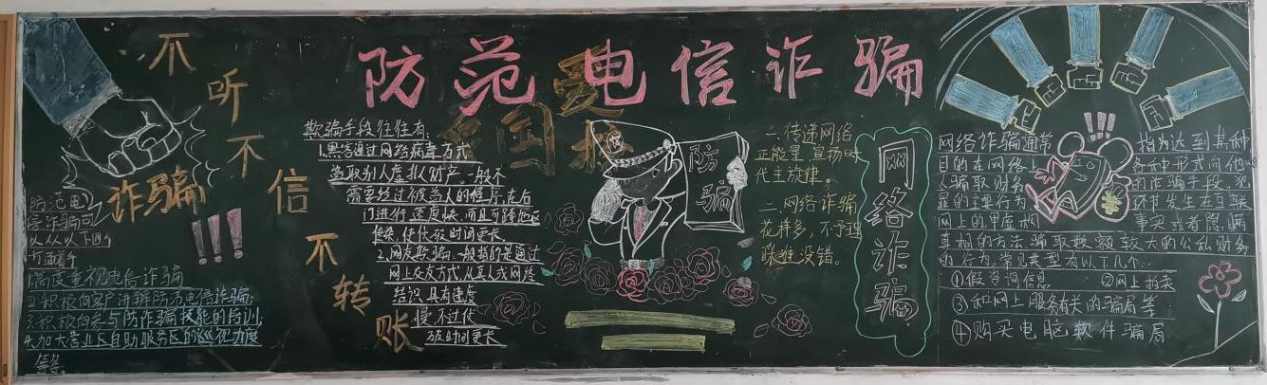 防范电信诈骗
不听不信不转账
诈骗!!!
防范电
信诈骗可
以从以下四个
方面着手
1.高度重视电信诈骗
2.积极向客户讲解防范电信诈骗;
3.积极向参与防诈骗技能的培训,
4.加大营业区自助服务区的巡视力度
等等
欺骗手段往往有:
1.黑客通过网络病毒方式
盗取别人虚拟财产。一般不
需要经过被盗人的程序,在后
门进行,速度快,而且可跨地区
传染,使侦破时间更长
2.网友欺骗,一般指的是通过
网上交友方式从真人或网络
结识,具有速度
慢不过代
破时间更长
防骗
一、传递网络
正能量,宣扬时
代主旋律。
二、网络诈骗
花样多,不予理
睬准没错。
网络诈骗
网络诈骗通常 指为达到某种
目的在网络上 各种形式向他
人骗取财物 的诈骗手段。犯
罪的主要行为 环节发生在互联
网上的用虚构 事实或者隐瞒
真相的方法,骗取数额较大的公私财务
的行为,常见类型有以下几个:
①假咨询信息 ②网上拍卖
③和网上服务有关的骗局等
④购买电脑软件骗局